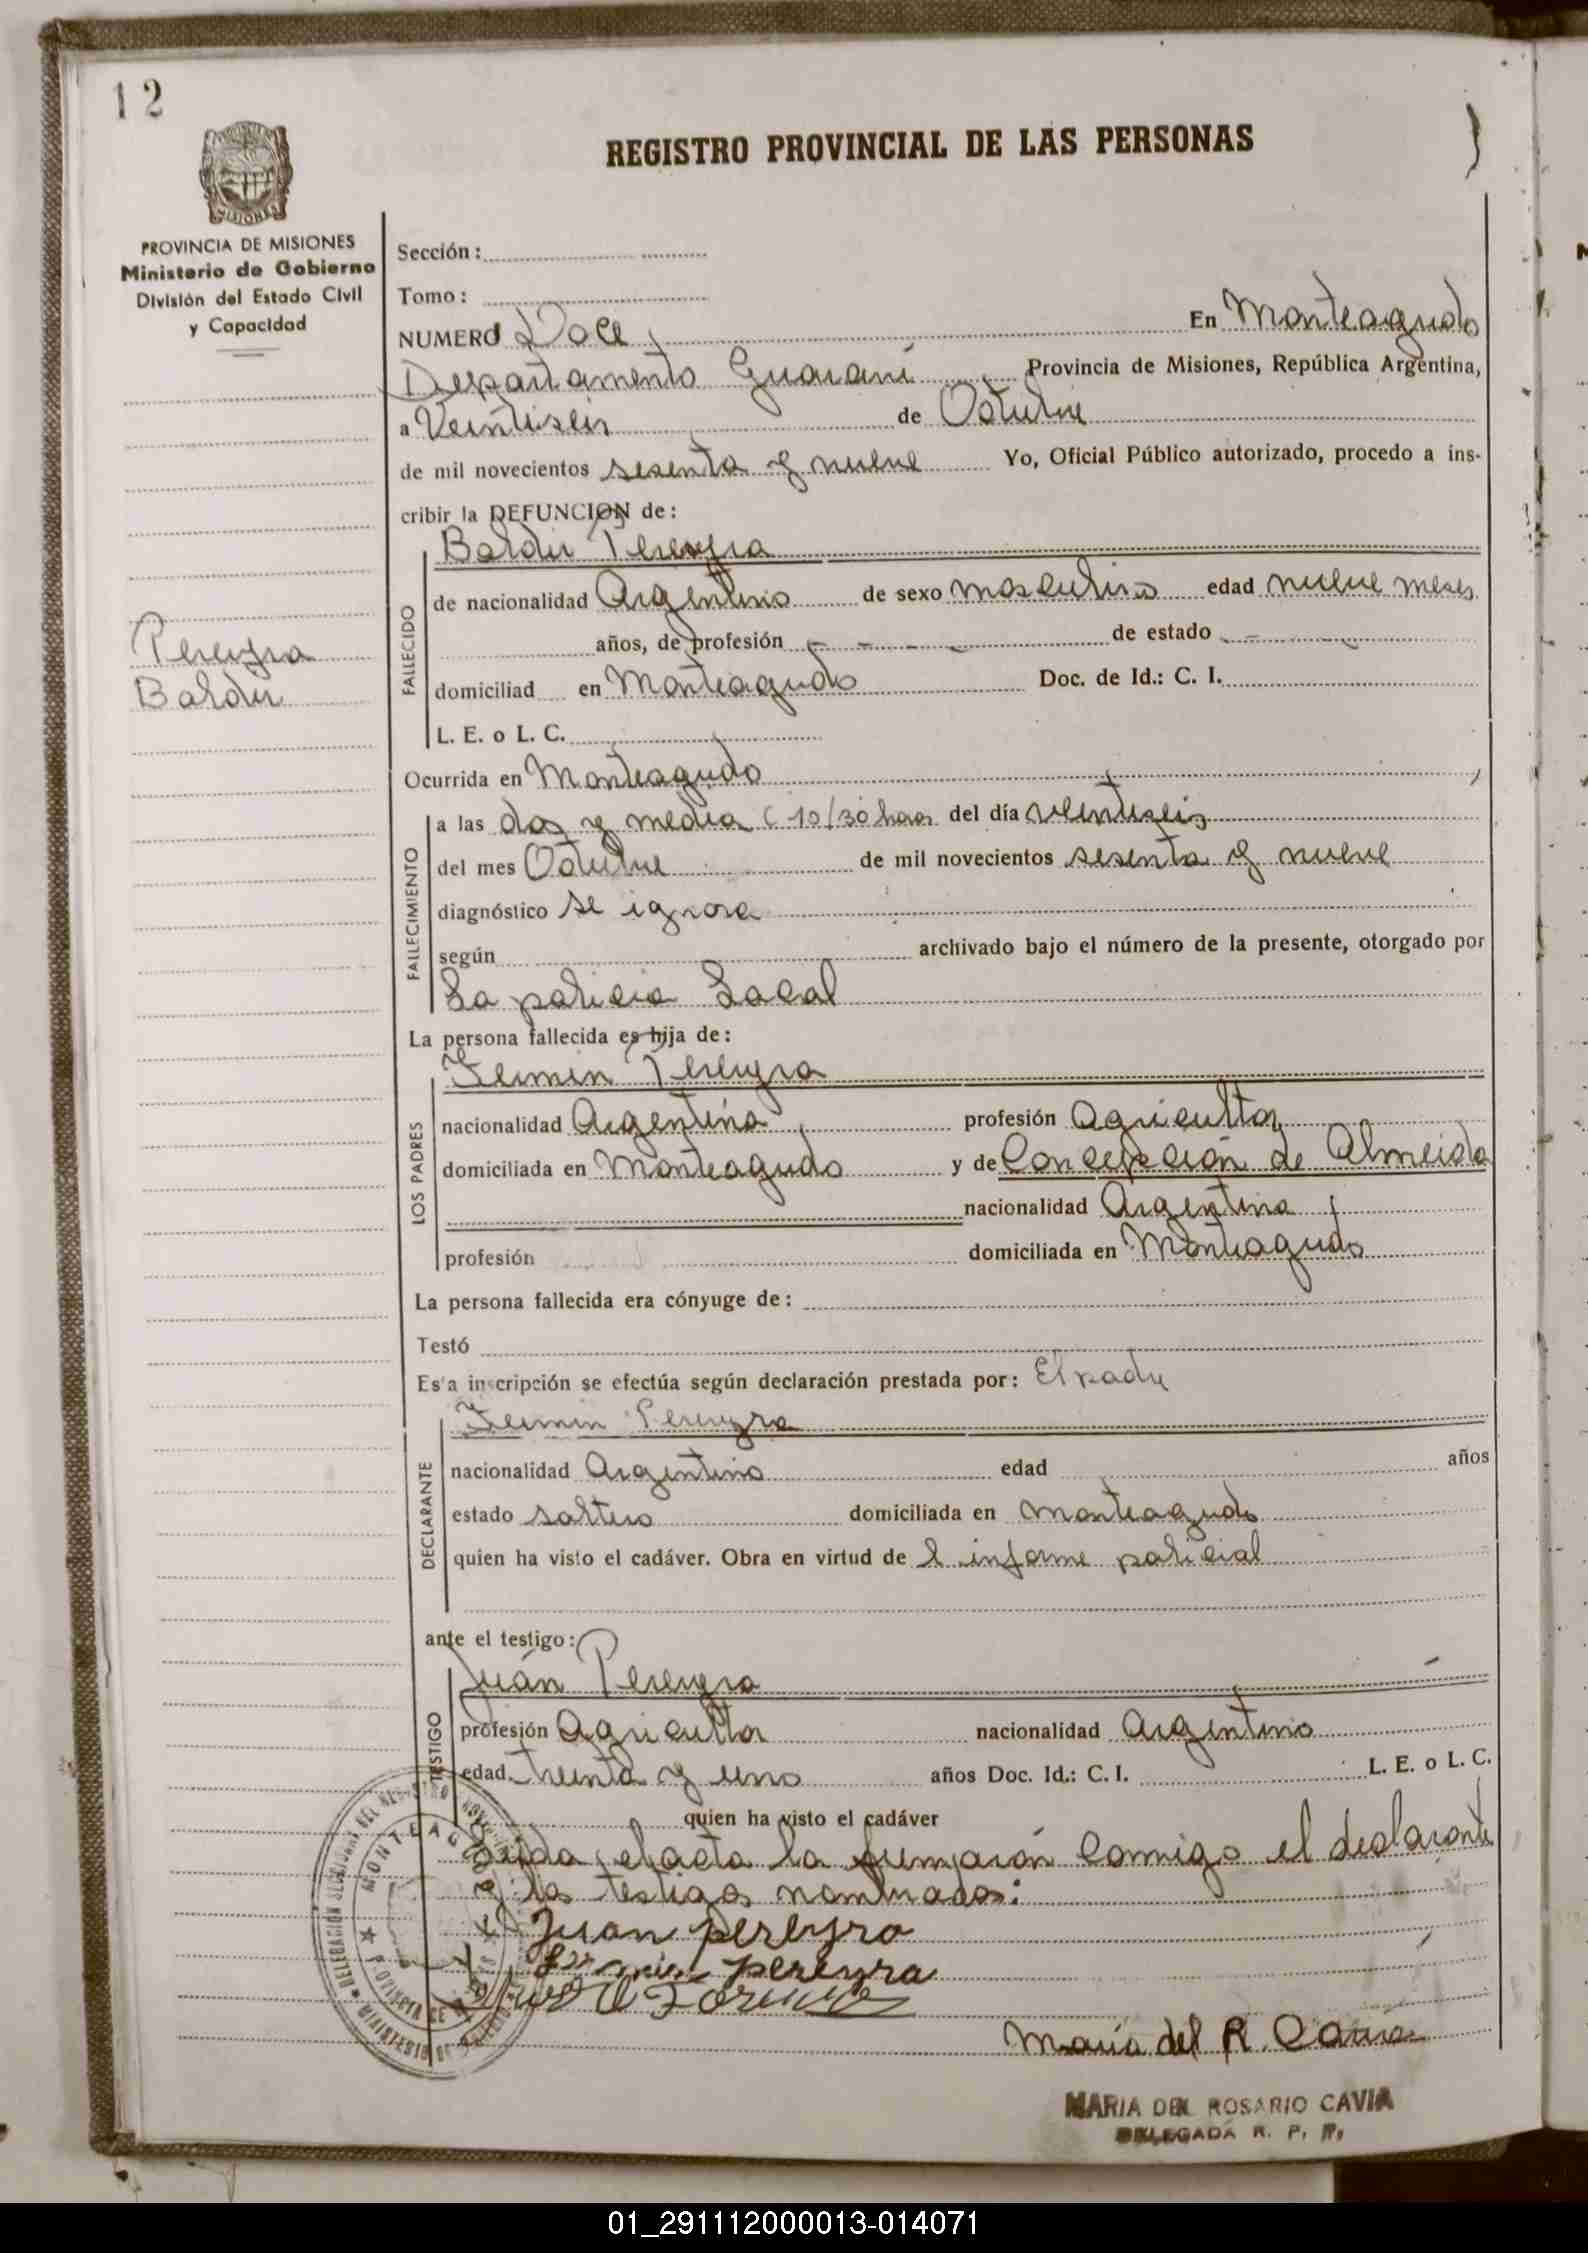 12
REGISTRO PROVINCIAL DE LAS PERSONAS
PROVINCIA DE MISIONES
Ministerio de Gobierno
División del Estado Civil
y Capacidad
Sección:
Tomo:
NUMERO Doce En Monteagudo
Departamento Guaraní Provincia de Misiones, República Argentina,
a Veintiseis de Octubre
de mil novecientos sesenta y nueve Yo, Oficial Público autorizado, procedo a ins-
cribir la DEFUNCION de:
Baldir Pereyra
FALLECIDO
de nacionalidad Argentino de sexo masculino edad nueve meses
años, de profesión de estado
Pereyra
Baldir
domiciliad en Monteagudo Doc. de Id.: C. I.
L. E. o L. C.
Ocurrida en Monteagudo
FALLECIMIENTO
a las dos y media (10/30 horas del día veintiseis
del mes Octubre de mil novecientos sesenta y nueve
diagnóstico se ignora
según archivado bajo el número de la presente, otorgado por
La policia Local
La persona fallecida es hija de:
Fermin Pereyra
LOS PADRES
nacionalidad Argentina profesión Agricultor
domiciliada en Monteagudo y de Concepción de Almeida
nacionalidad Argentina
profesión domiciliada en Monteagudo
La persona fallecida era cónyuge de:
Testó
Esta inscripción se efectúa según declaración prestada por: El padre
Fermin Pereyra
DECLARANTE
nacionalidad Argentino edad años
estado soltero domiciliada en Monteagudo
quien ha visto el cadáver. Obra en virtud de l informe policial
ante el testigo:
Juán Pereyra
TESTIGO
profesión Agricultor nacionalidad Argentino
edad treinta y uno años Doc. Id.: C. I. L. E. o L. C.
quien ha visto el cadáver
Leida el acta la firmarón conmigo el declarante
y los testigos nombrados:
Juan pereyra
pereyra
María del R. Cavia
MARIA DEL ROSARIO CAVIA
DELEGADA R. P. P.
01_291112000013-014071